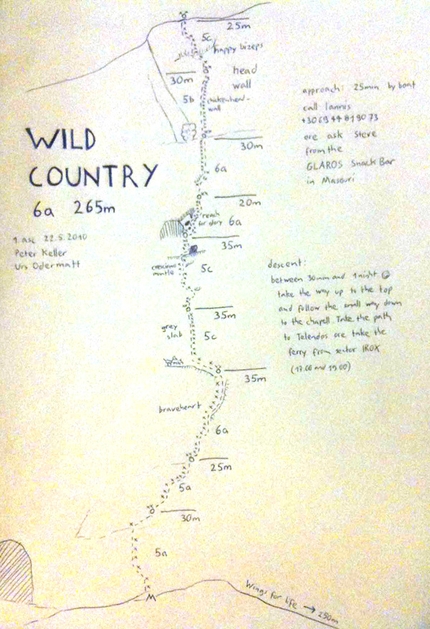 25m
5c
happy biceps
30m
head
wall
5b
30m
6a
20m
reach
or dory
6a
35m
5c
grey
slab
35m
5c
35m
braveheart
6a
25m
5a
30m
5a
WILD
COUNTRY
6a 265m
1. asc 22.5.2010
Peter Keller
Urs Odermatt
approach: 25min by boat
call Iannis
are ask Steve
from the
GLAROS Snack Bar
in Masouri
descent:
between 30min and 1 night ☺
take the way up to the top
and follow the small way down
to the chapell. Take the path
to Telendos are take the
ferry from sector IROX
(17.00 and 19.00)
Wings for life → 250m